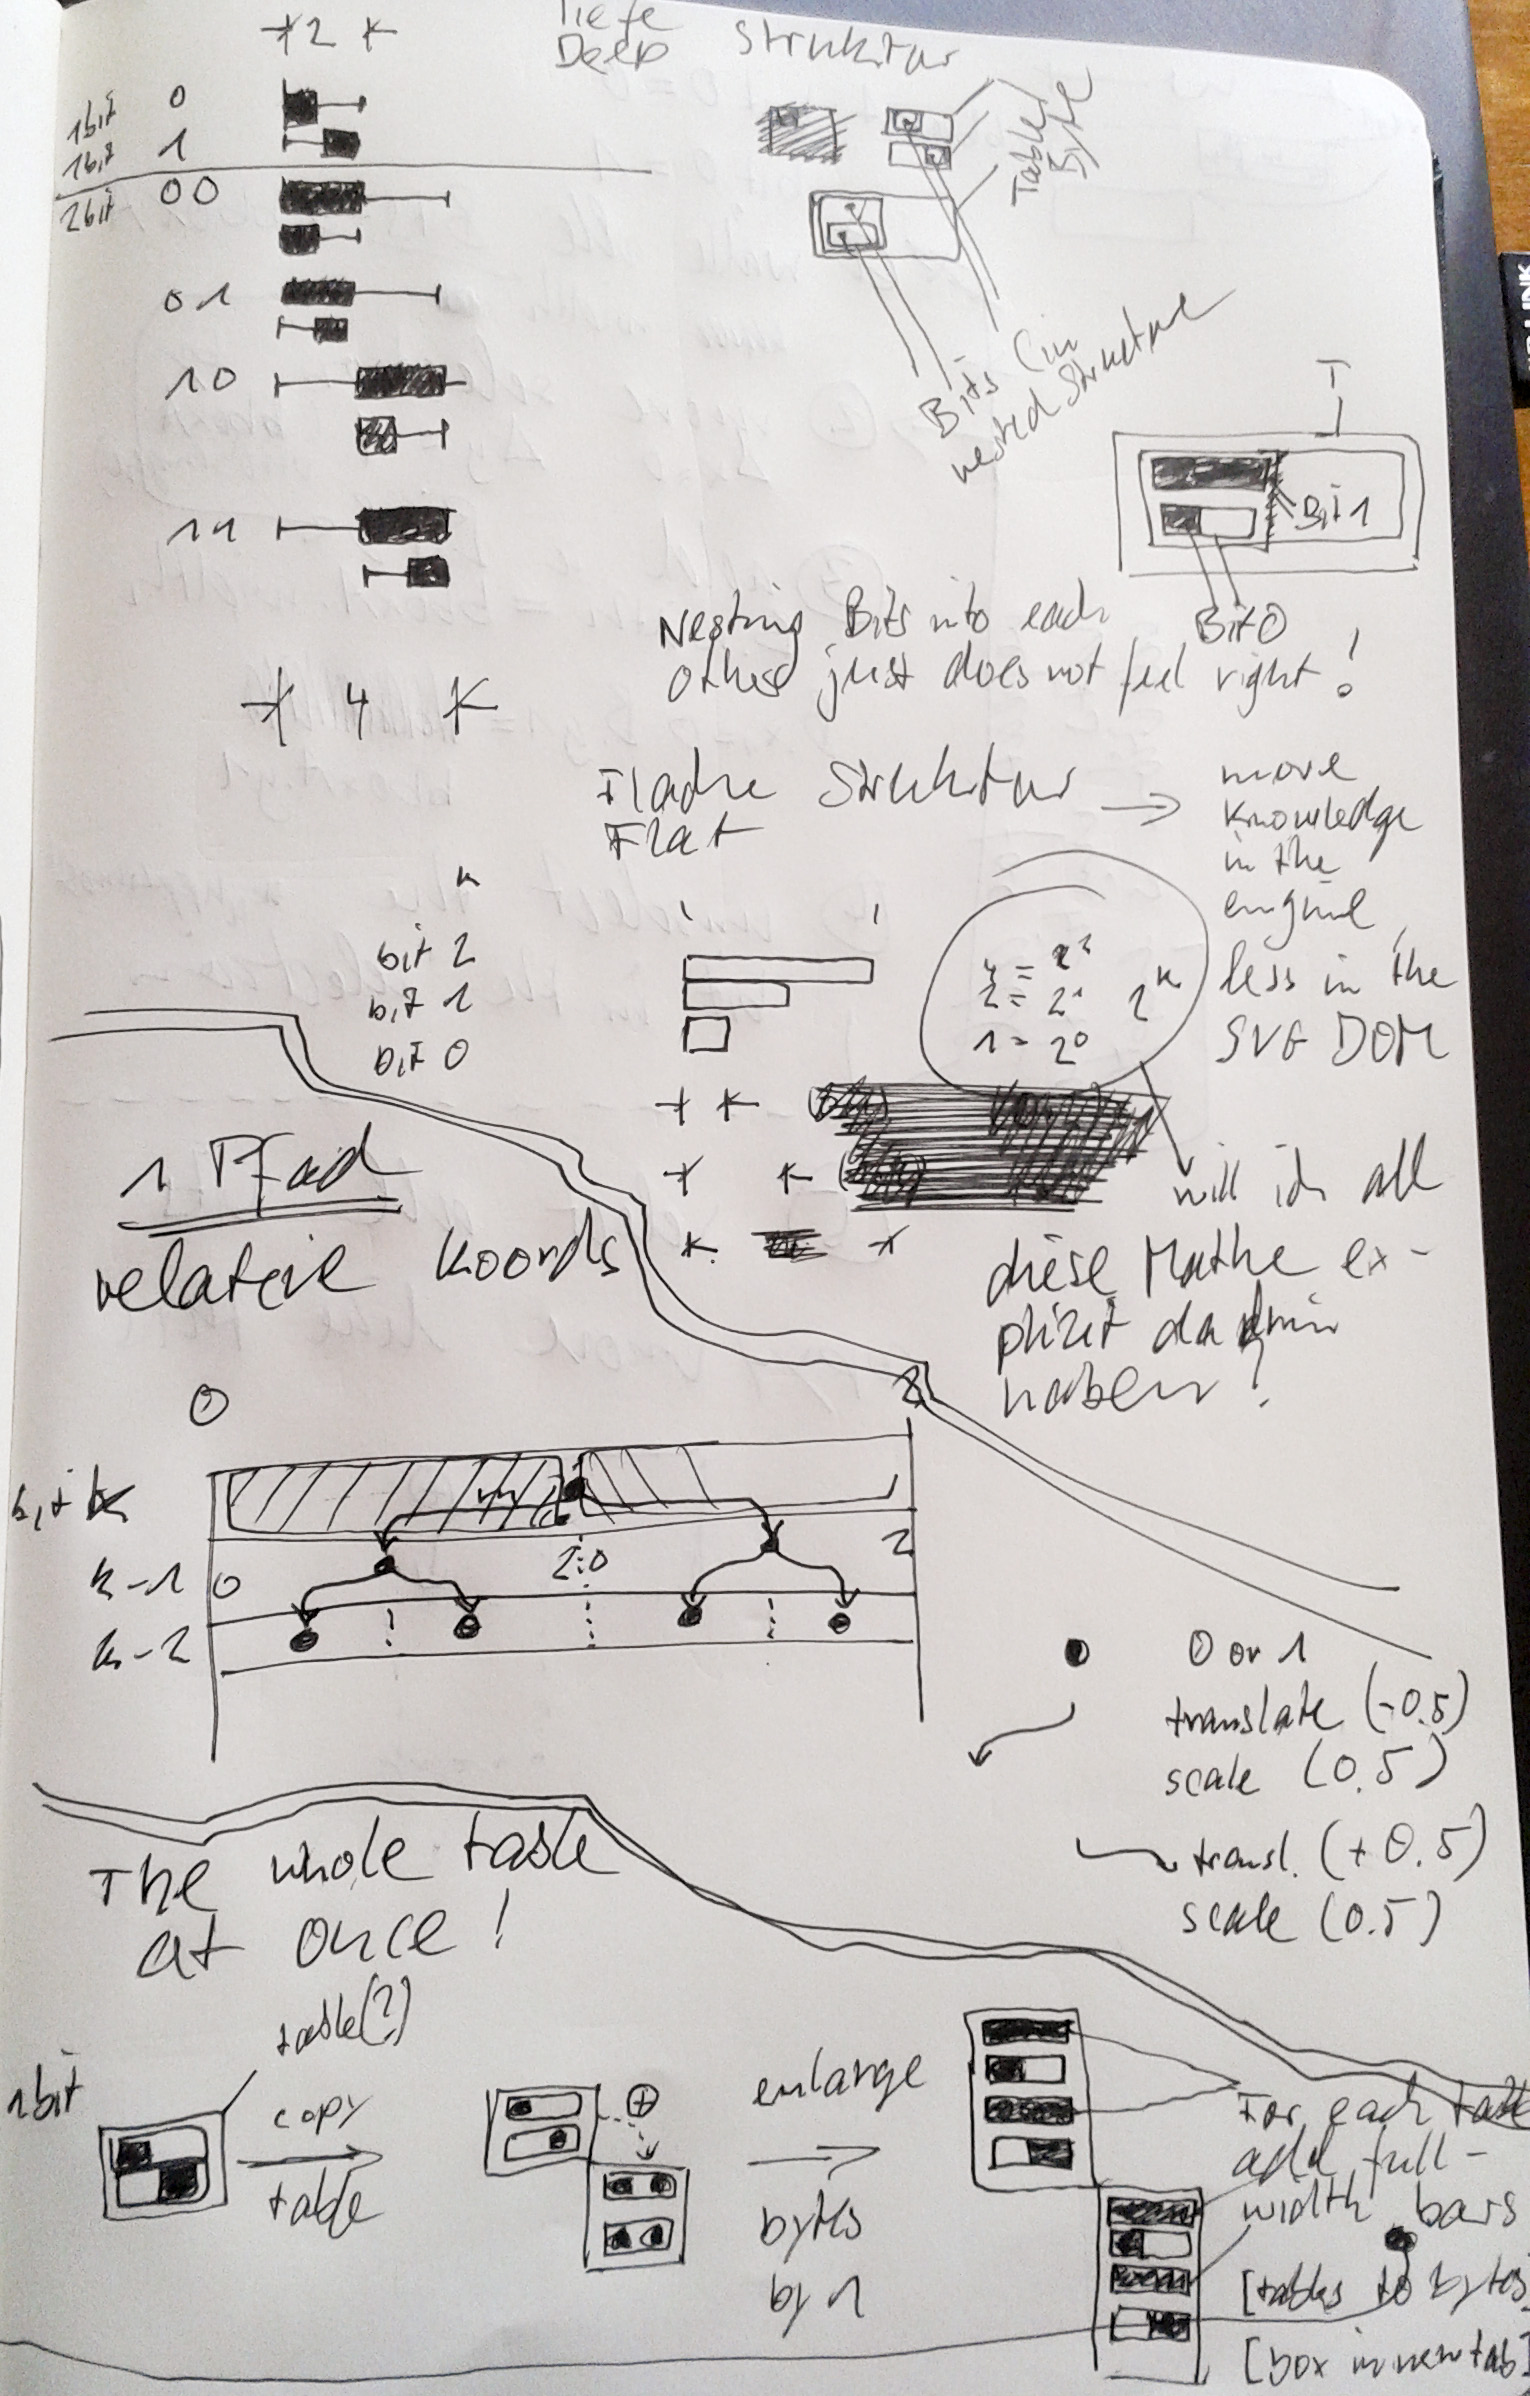 2
Tiefe
Deep Struktur
1bit 0
1bit 1
2bit 00
01
10
11
Table
Byte
Bits (in
nested Structure
T
Bit 1
Bit 0
Nesting Bits into each
other just does not feel right!
4
Flache Struktur
Flat
→ move
knowledge
in the
engine,
less in the
SVG DOM
bit 2
bit 1
bit 0
2 = 2¹ 2ᵏ
1 = 2⁰
will ich all
diese Mathe ex-
plizit da drin
haben?
1 Pfad
relative Koords
0
2
bit k
k-1 0
2:0
2
k-2
0 or 1
translate (-0.5)
scale (0.5)
transl. (+0.5)
scale (0.5)
The whole table
at once!
table(?)
1bit
copy
table
enlarge
bytes
by 1
For each table
add full-
width bars
[tables to bytes]
[box in new tab]